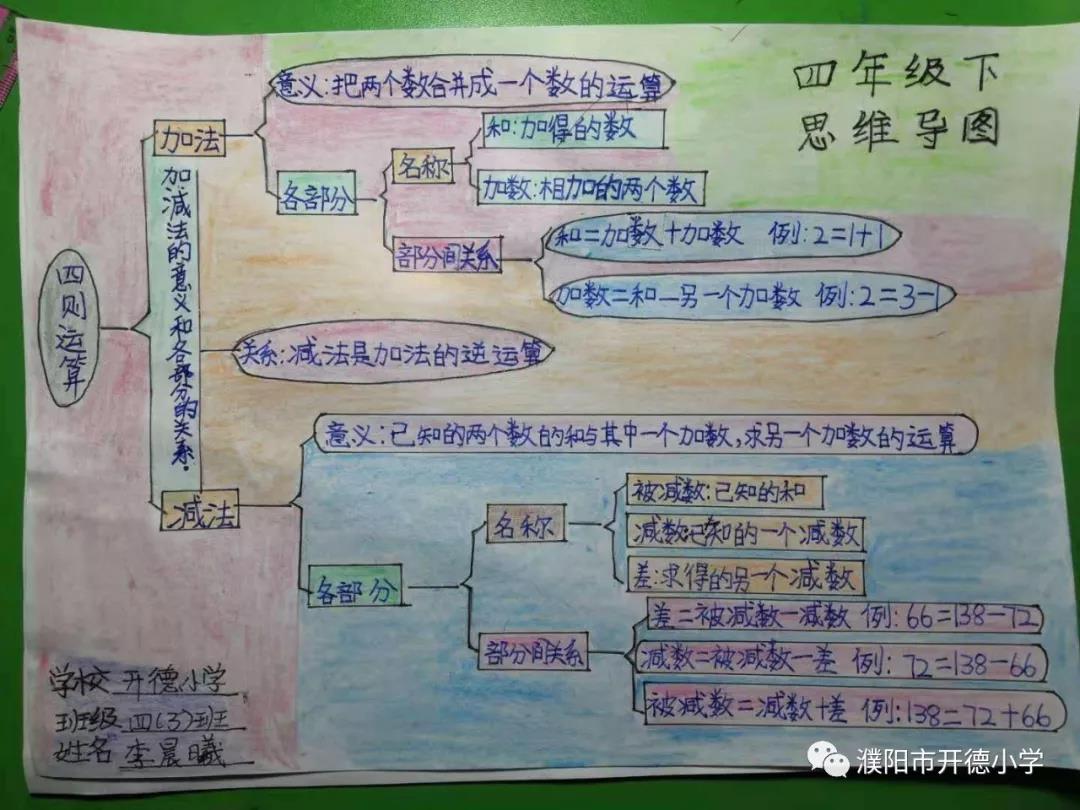 四年级下
思维导图
四则运算
加法
意义:把两个数合并成一个数的运算
各部分
名称
和:加得的数
加数:相加的两个数
部分间关系
和=加数+加数 例:2=1+1
加数=和-另一个加数 例:2=3-1
加减法的意义和各部分的关系.
关系:减法是加法的逆运算
减法
意义:已知的两个数的和与其中一个加数,求另一个加数的运算
各部分
名称
被减数:已知的和
减数:已知的一个减数
差:求得的另一个减数
部分间关系
差=被减数-减数 例:66=138-72
减数=被减数-差 例:72=138-66
被减数=减数+差 例:138=72+66
学校 开德小学
班级 四(3)班
姓名 李晨曦
濮阳市开德小学